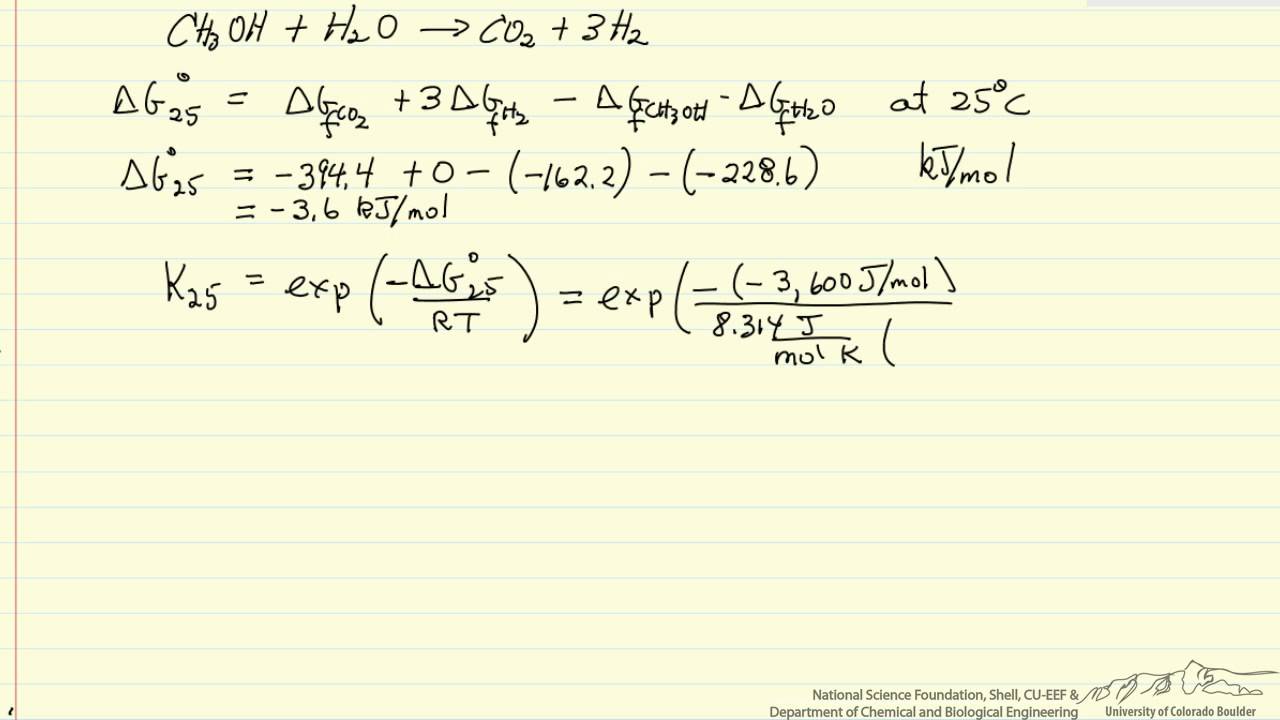 CH₃OH + H₂O → CO₂ + 3H₂
ΔG°₂₅ = ΔG_fCO₂ + 3ΔG_fH₂ − ΔG_fCH₃OH - ΔG_fH₂O at 25°C
ΔG°₂₅ = −394.4 + 0 − (−162.2) − (−228.6) kJ/mol
= −3.6 kJ/mol
K₂₅ = exp(−ΔG°₂₅/RT) = exp(−(−3,600 J/mol)/8.314 J/mol K (
National Science Foundation, Shell, CU-EEF &
Department of Chemical and Biological Engineering
University of Colorado Boulder